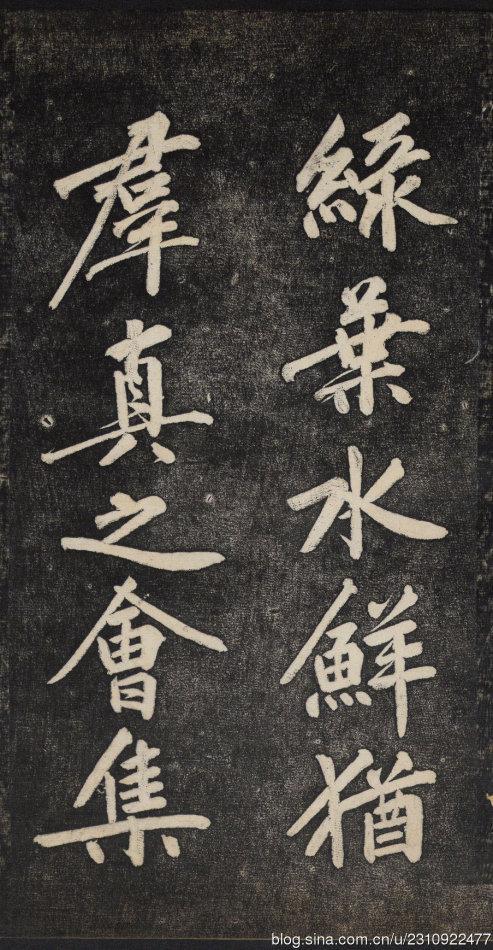 綠葉水鮮猶
羣真之會集
blog.sina.com.cn/u/2310922477